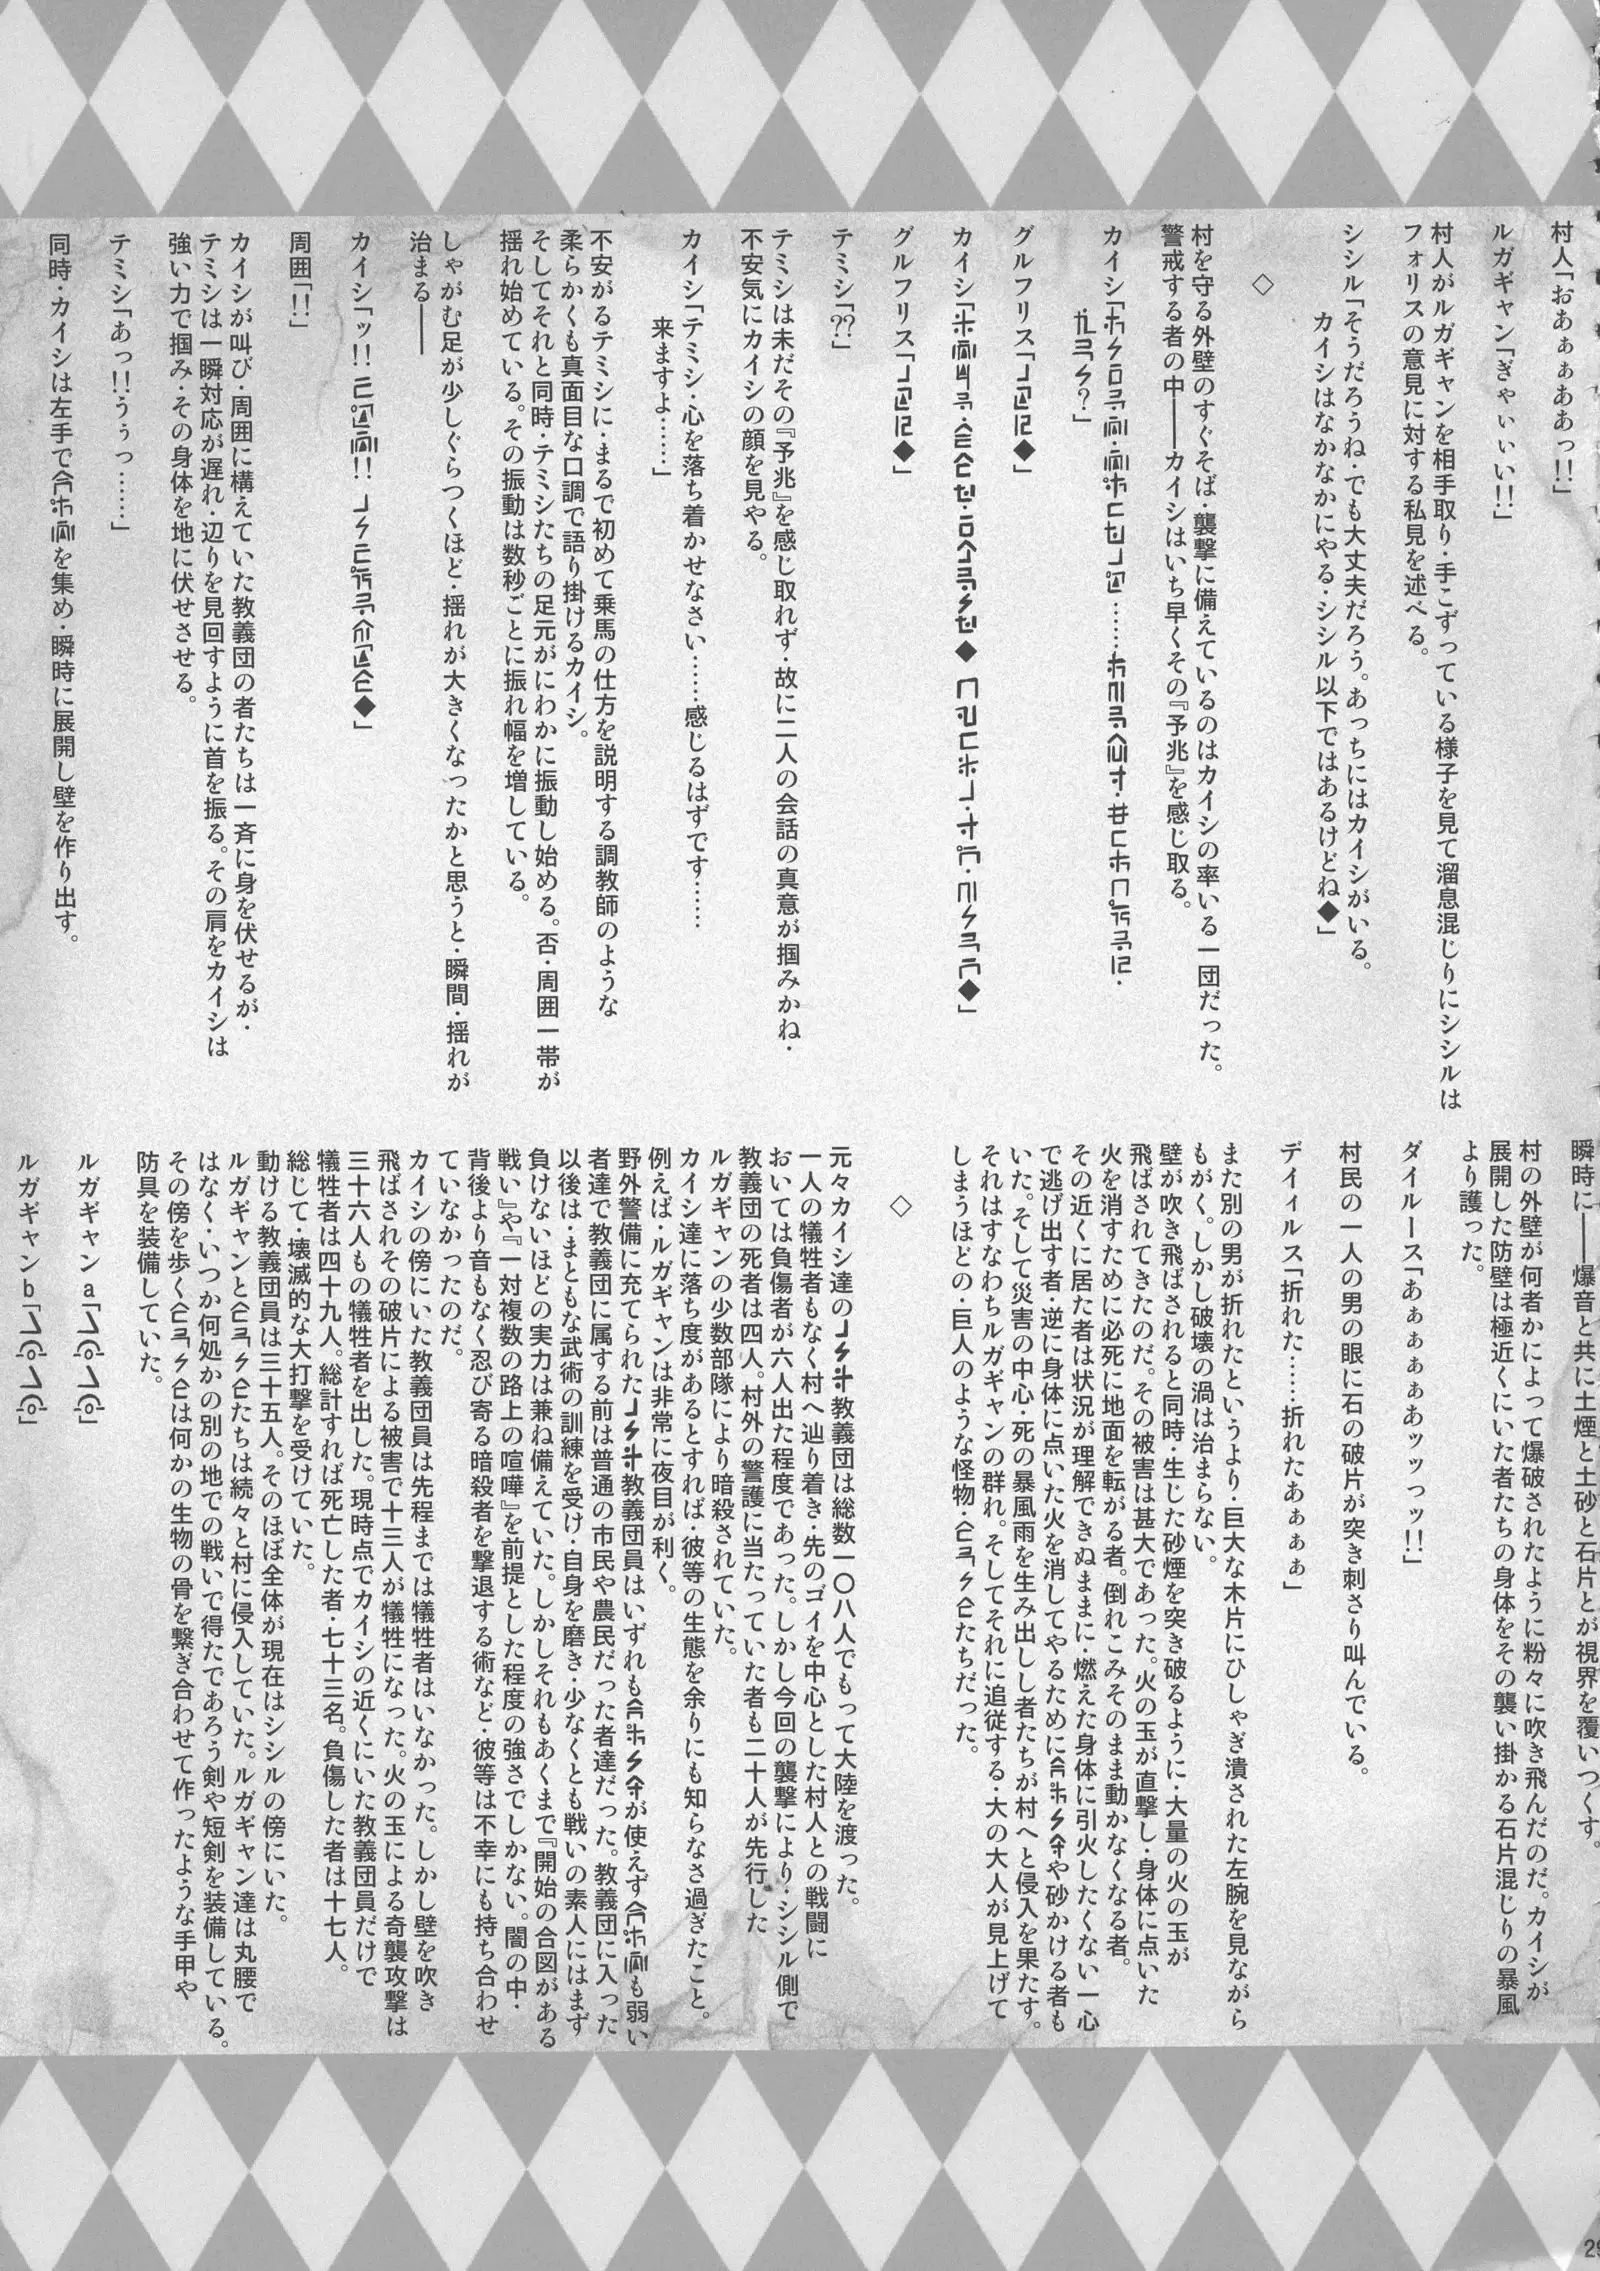 村人「おあぁぁああっ!!」
ルガギャン「ぎゃいぃい!!」
村人がルガギャンを相手取り・手こずっている様子を見て溜息混じりにシシルは
フォリスの意見に対する私見を述べる。
シシル「そうだろうね・でも大丈夫だろう。あっちにはカイシがいる。
カイシはなかなかにやる・シシル以下ではあるけどね◆」
◇
村を守る外壁のすぐそば・襲撃に備えているのはカイシの率いる一団だった。
警戒する者の中━━カイシはいち早くその『予兆』を感じ取る。
カイシ「
？」
グルフリス「◆」
カイシ「◆ ◆」
グルフリス「◆」
テミシ「??」
テミシは未だその『予兆』を感じ取れず・故に二人の会話の真意が掴みかね・
不安気にカイシの顔を見やる。
カイシ「テミシ・心を落ち着かせなさい……感じるはずです……
来ますよ……」
不安がるテミシに・まるで初めて乗馬の仕方を説明する調教師のような
柔らかくも真面目な口調で語り掛けるカイシ。
そしてそれと同時・テミシたちの足元がにわかに振動し始める。否・周囲一帯が
揺れ始めている。その振動は数秒ごとに振れ幅を増している。
しゃがむ足が少しぐらつくほど・揺れが大きくなったかと思うと・瞬間・揺れが
治まる━━
カイシ「ッ!! !! ◆」
周囲「!!」
カイシが叫び・周囲に構えていた教義団の者たちは一斉に身を伏せるが・
テミシは一瞬対応が遅れ・辺りを見回すように首を振る。その肩をカイシは
強い力で掴み・その身体を地に伏せさせる。
テミシ「あっ!!うぅっ……」
同時・カイシは左手でを集め・瞬時に展開し壁を作り出す。
瞬時に━━爆音と共に土煙と土砂と石片とが視界を覆いつくす。
村の外壁が何者かによって爆破されたように粉々に吹き飛んだのだ。カイシが
展開した防壁は極近くにいた者たちの身体をその襲い掛かる石片混じりの暴風
より護った。
ダイルース「あぁぁぁぁあッッっッ!!」
村民の一人の男の眼に石の破片が突き刺さり叫んでいる。
デイィルス「折れた……折れたあぁぁぁ」
また別の男が折れたというより・巨大な木片にひしゃぎ潰された左腕を見ながら
もがく。しかし破壊の渦は治まらない。
壁が吹き飛ばされると同時・生じた砂煙を突き破るように・大量の火の玉が
飛ばされてきたのだ。その被害は甚大であった。火の玉が直撃し・身体に点いた
火を消すために必死に地面を転がる者。倒れこみそのまま動かなくなる者。
その近くに居た者は状況が理解できぬままに・燃えた身体に引火したくない一心
で逃げ出す者・逆に身体に点いた火を消してやるためにや砂かける者も
いた。そして災害の中心・死の暴風雨を生み出しし者たちが村へと侵入を果たす。
それはすなわちルガギャンの群れ。そしてそれに追従する・大の大人が見上げて
しまうほどの・巨人のような怪物・たちだった。
◇
元々カイシ達の教義団は総数一〇八人でもって大陸を渡った。
一人の犠牲者もなく村へ辿り着き・先のゴイを中心とした村人との戦闘に
おいては負傷者が六人出た程度であった。しかし今回の襲撃により・シシル側で
教義団の死者は四人。村外の警護に当たっていた者も二十人が先行した
ルガギャンの少数部隊により暗殺されていた。
カイシ達に落ち度があるとすれば・彼等の生態を余りにも知らなさ過ぎたこと。
例えば・ルガギャンは非常に夜目が利く。
野外警備に充てられた教義団員はいずれもが使えずも弱い
者達で教義団に属する前は普通の市民や農民だった者達だった。教義団に入った
以後は・まともな武術の訓練を受け・自身を磨き・少なくとも戦いの素人にはまず
負けないほどの実力は兼ね備えていた。しかしそれもあくまで『開始の合図がある
戦い』や『一対複数の路上の喧嘩』を前提とした程度の強さでしかない。闇の中・
背後より音もなく忍び寄る暗殺者を撃退する術など・彼等は不幸にも持ち合わせ
ていなかったのだ。
カイシの傍にいた教義団員は先程までは犠牲者はいなかった。しかし壁を吹き
飛ばされその破片による被害で十三人が犠牲になった。火の玉による奇襲攻撃は
三十六人もの犠牲者を出した。現時点でカイシの近くにいた教義団員だけで
犠牲者は四十九人。総計すれば死亡した者・七十三名。負傷した者は十七人。
総じて・壊滅的な大打撃を受けていた。
動ける教義団員は三十五人。そのほぼ全体が現在はシシルの傍にいた。
ルガギャンとたちは続々と村に侵入していた。ルガギャン達は丸腰で
はなく・いつか何処かの別の地での戦いで得たであろう剣や短剣を装備している。
その傍を歩くは何かの生物の骨を繋ぎ合わせて作ったような手甲や
防具を装備していた。
ルガギャンa「」
ルガギャンb「」